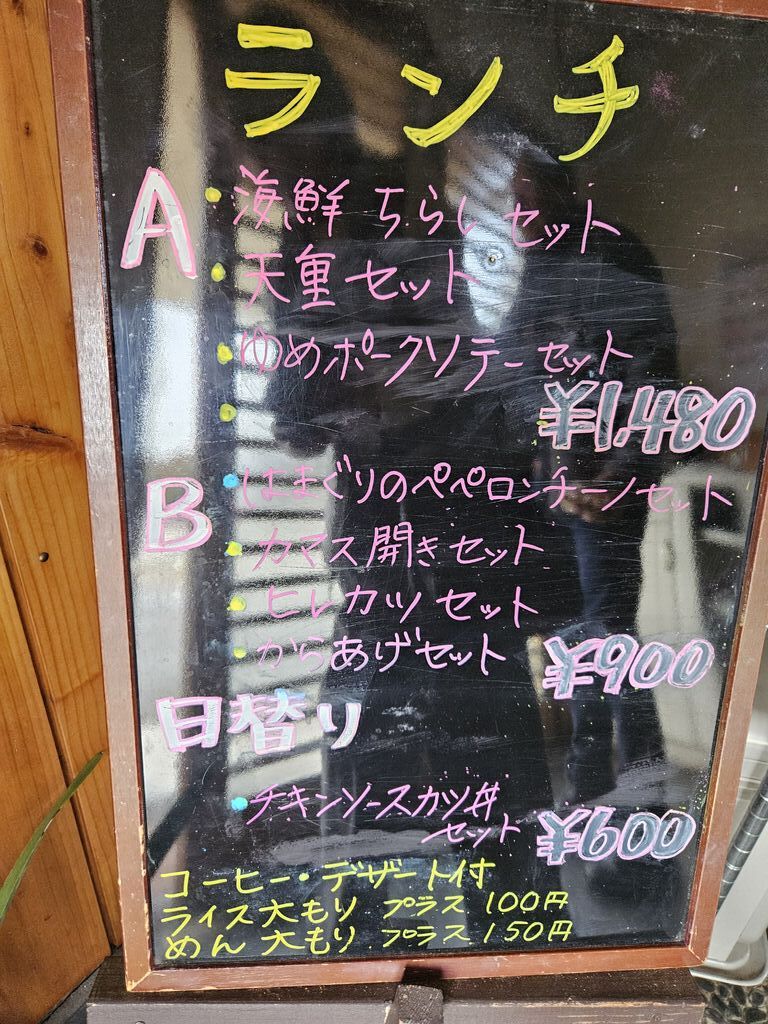 ランチ
A
・海鮮ちらしセット
・天重セット
・ゆめポークソテーセット
・
¥1,480
B
・はまぐりのペペロンチーノセット
・カマス開きセット
・ヒレカツセット
・からあげセット
¥900
日替り
・チキンソースカツ丼
セット
¥600
コーヒー・デザート付
ライス大もり プラス 100円
めん 大もり プラス 150円